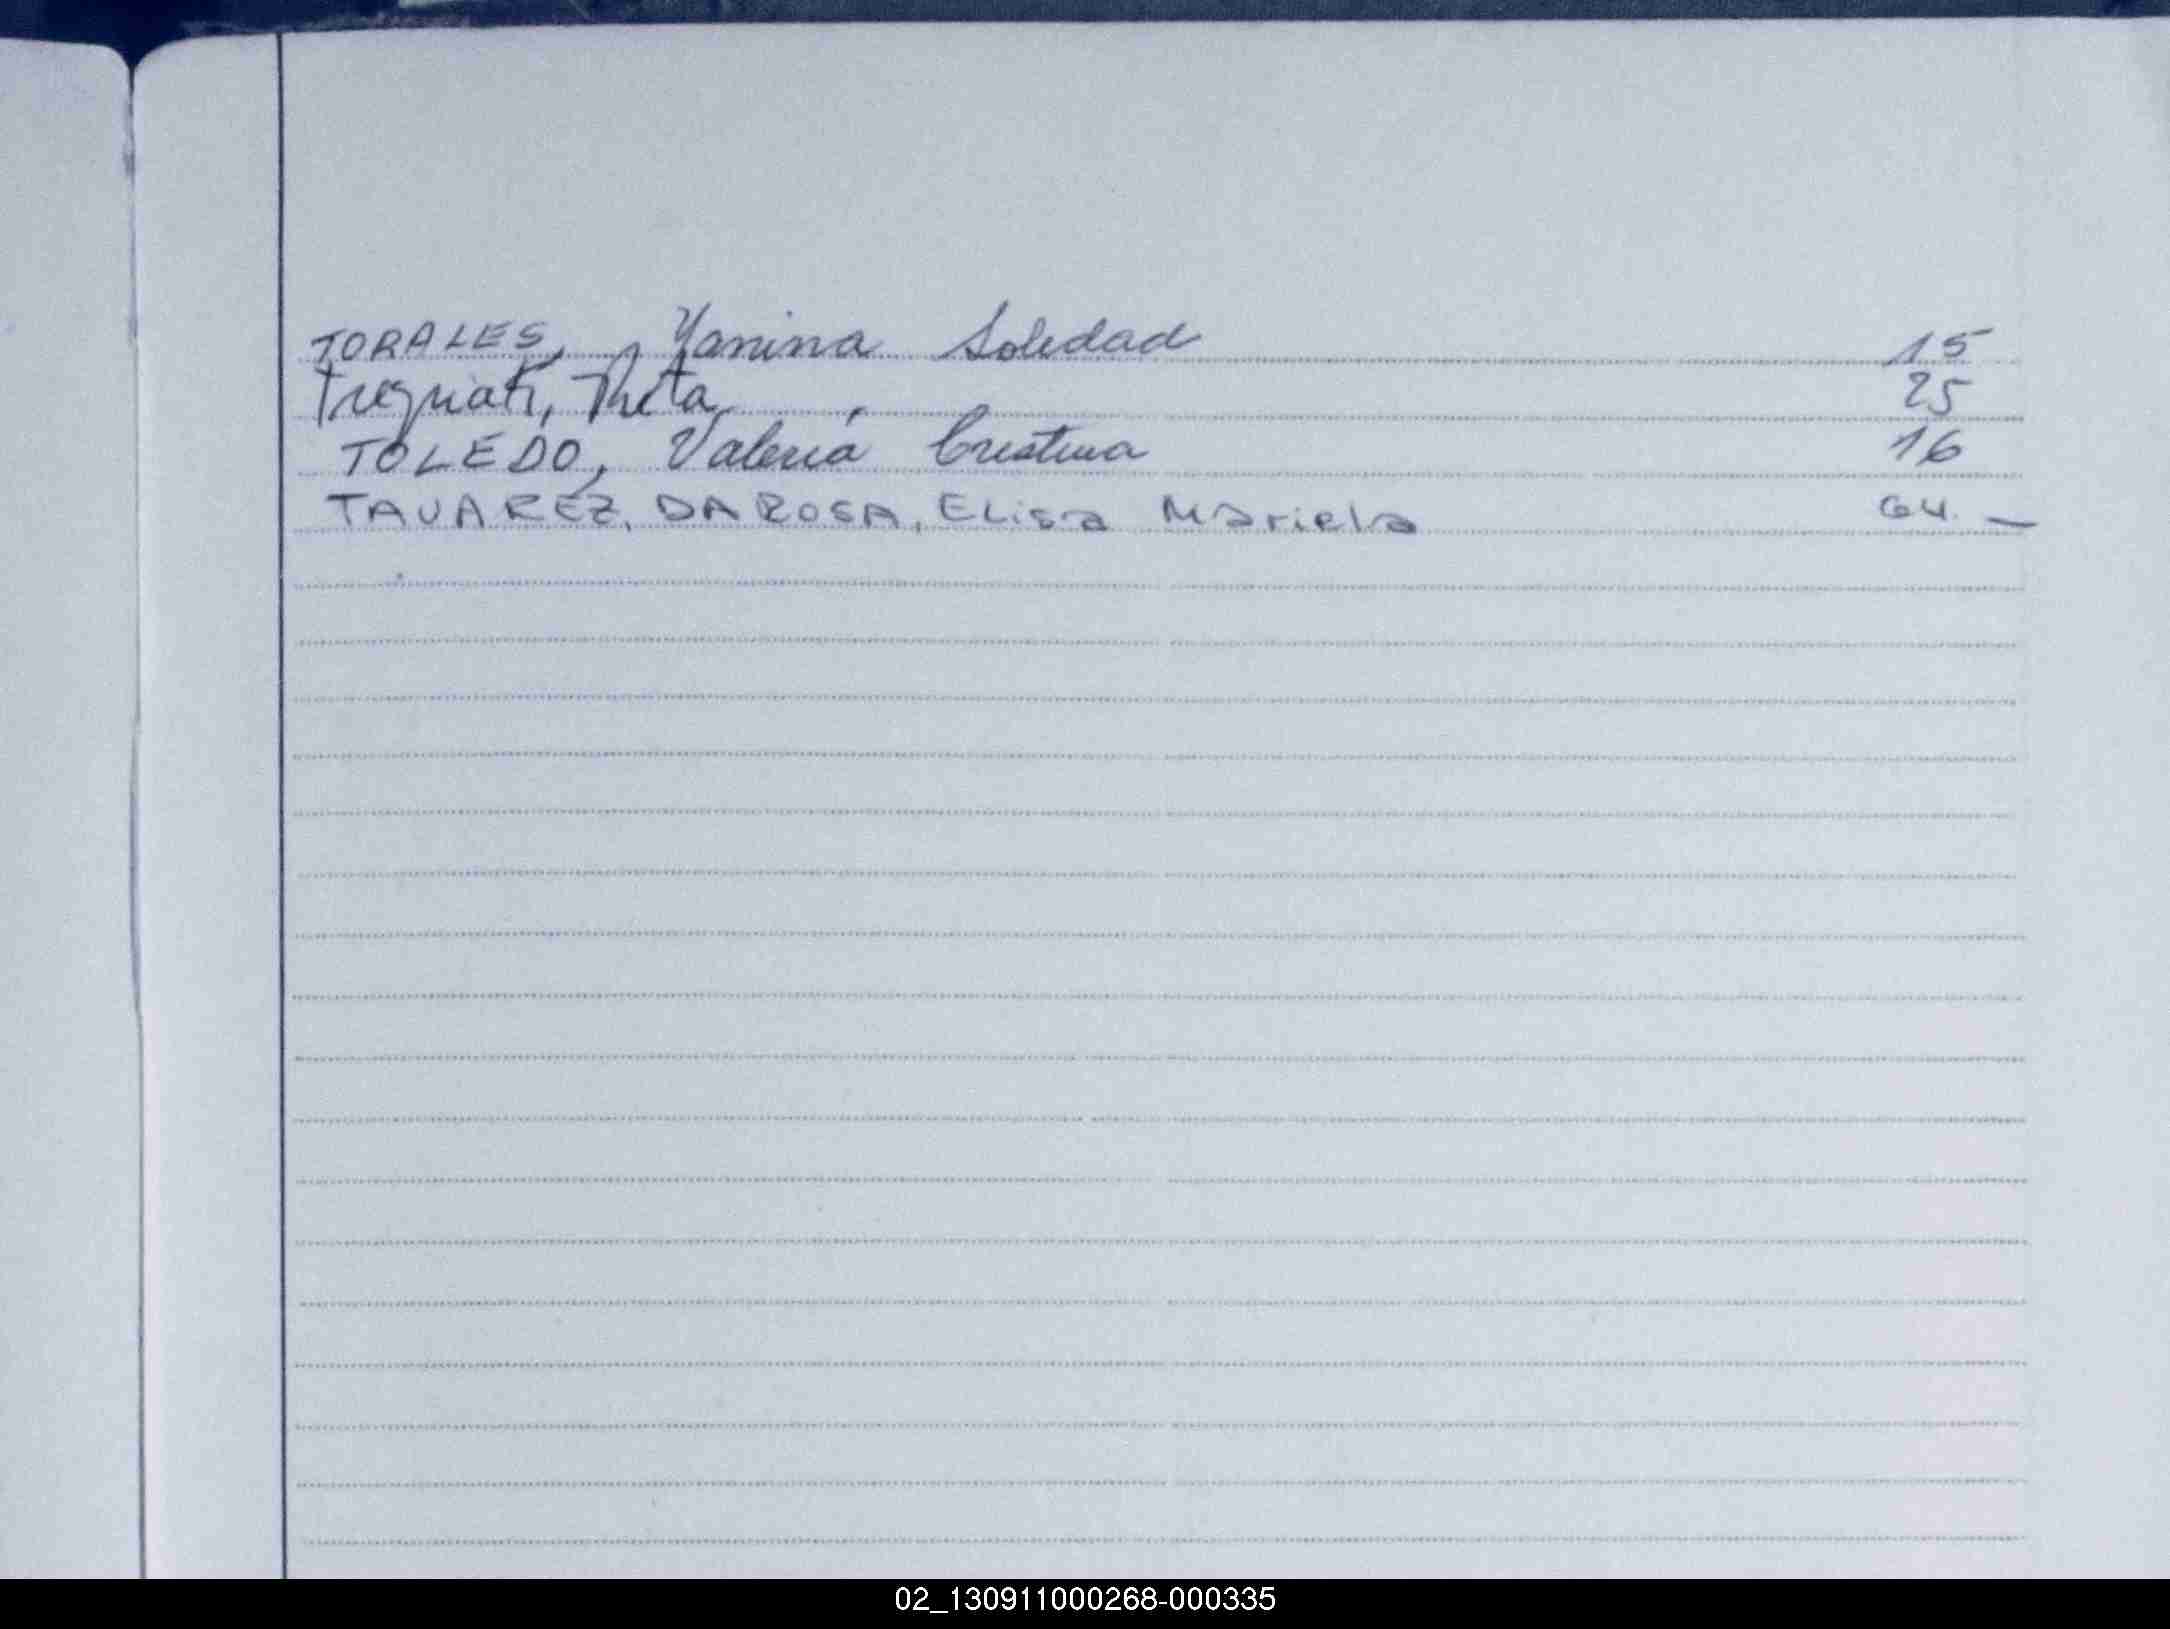 TORALES, Yanina Soledad 15
Rita 25
TOLEDO, Valeria Cristina 16
TAVAREZ, DA ROSA, Elisa Mariela 64. —
02_130911000268-000335